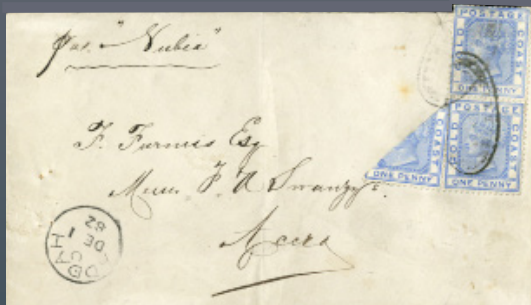 per "Nubia"
POSTAGE
GOLD COAST
ONE PENNY
POSTAGE
GOLD COAST
ONE PENNY
COAST
ONE PENNY
F. Furnis Esq
Messrs F & A Swanzy
Accra
ADDAH
C
1
DE
82